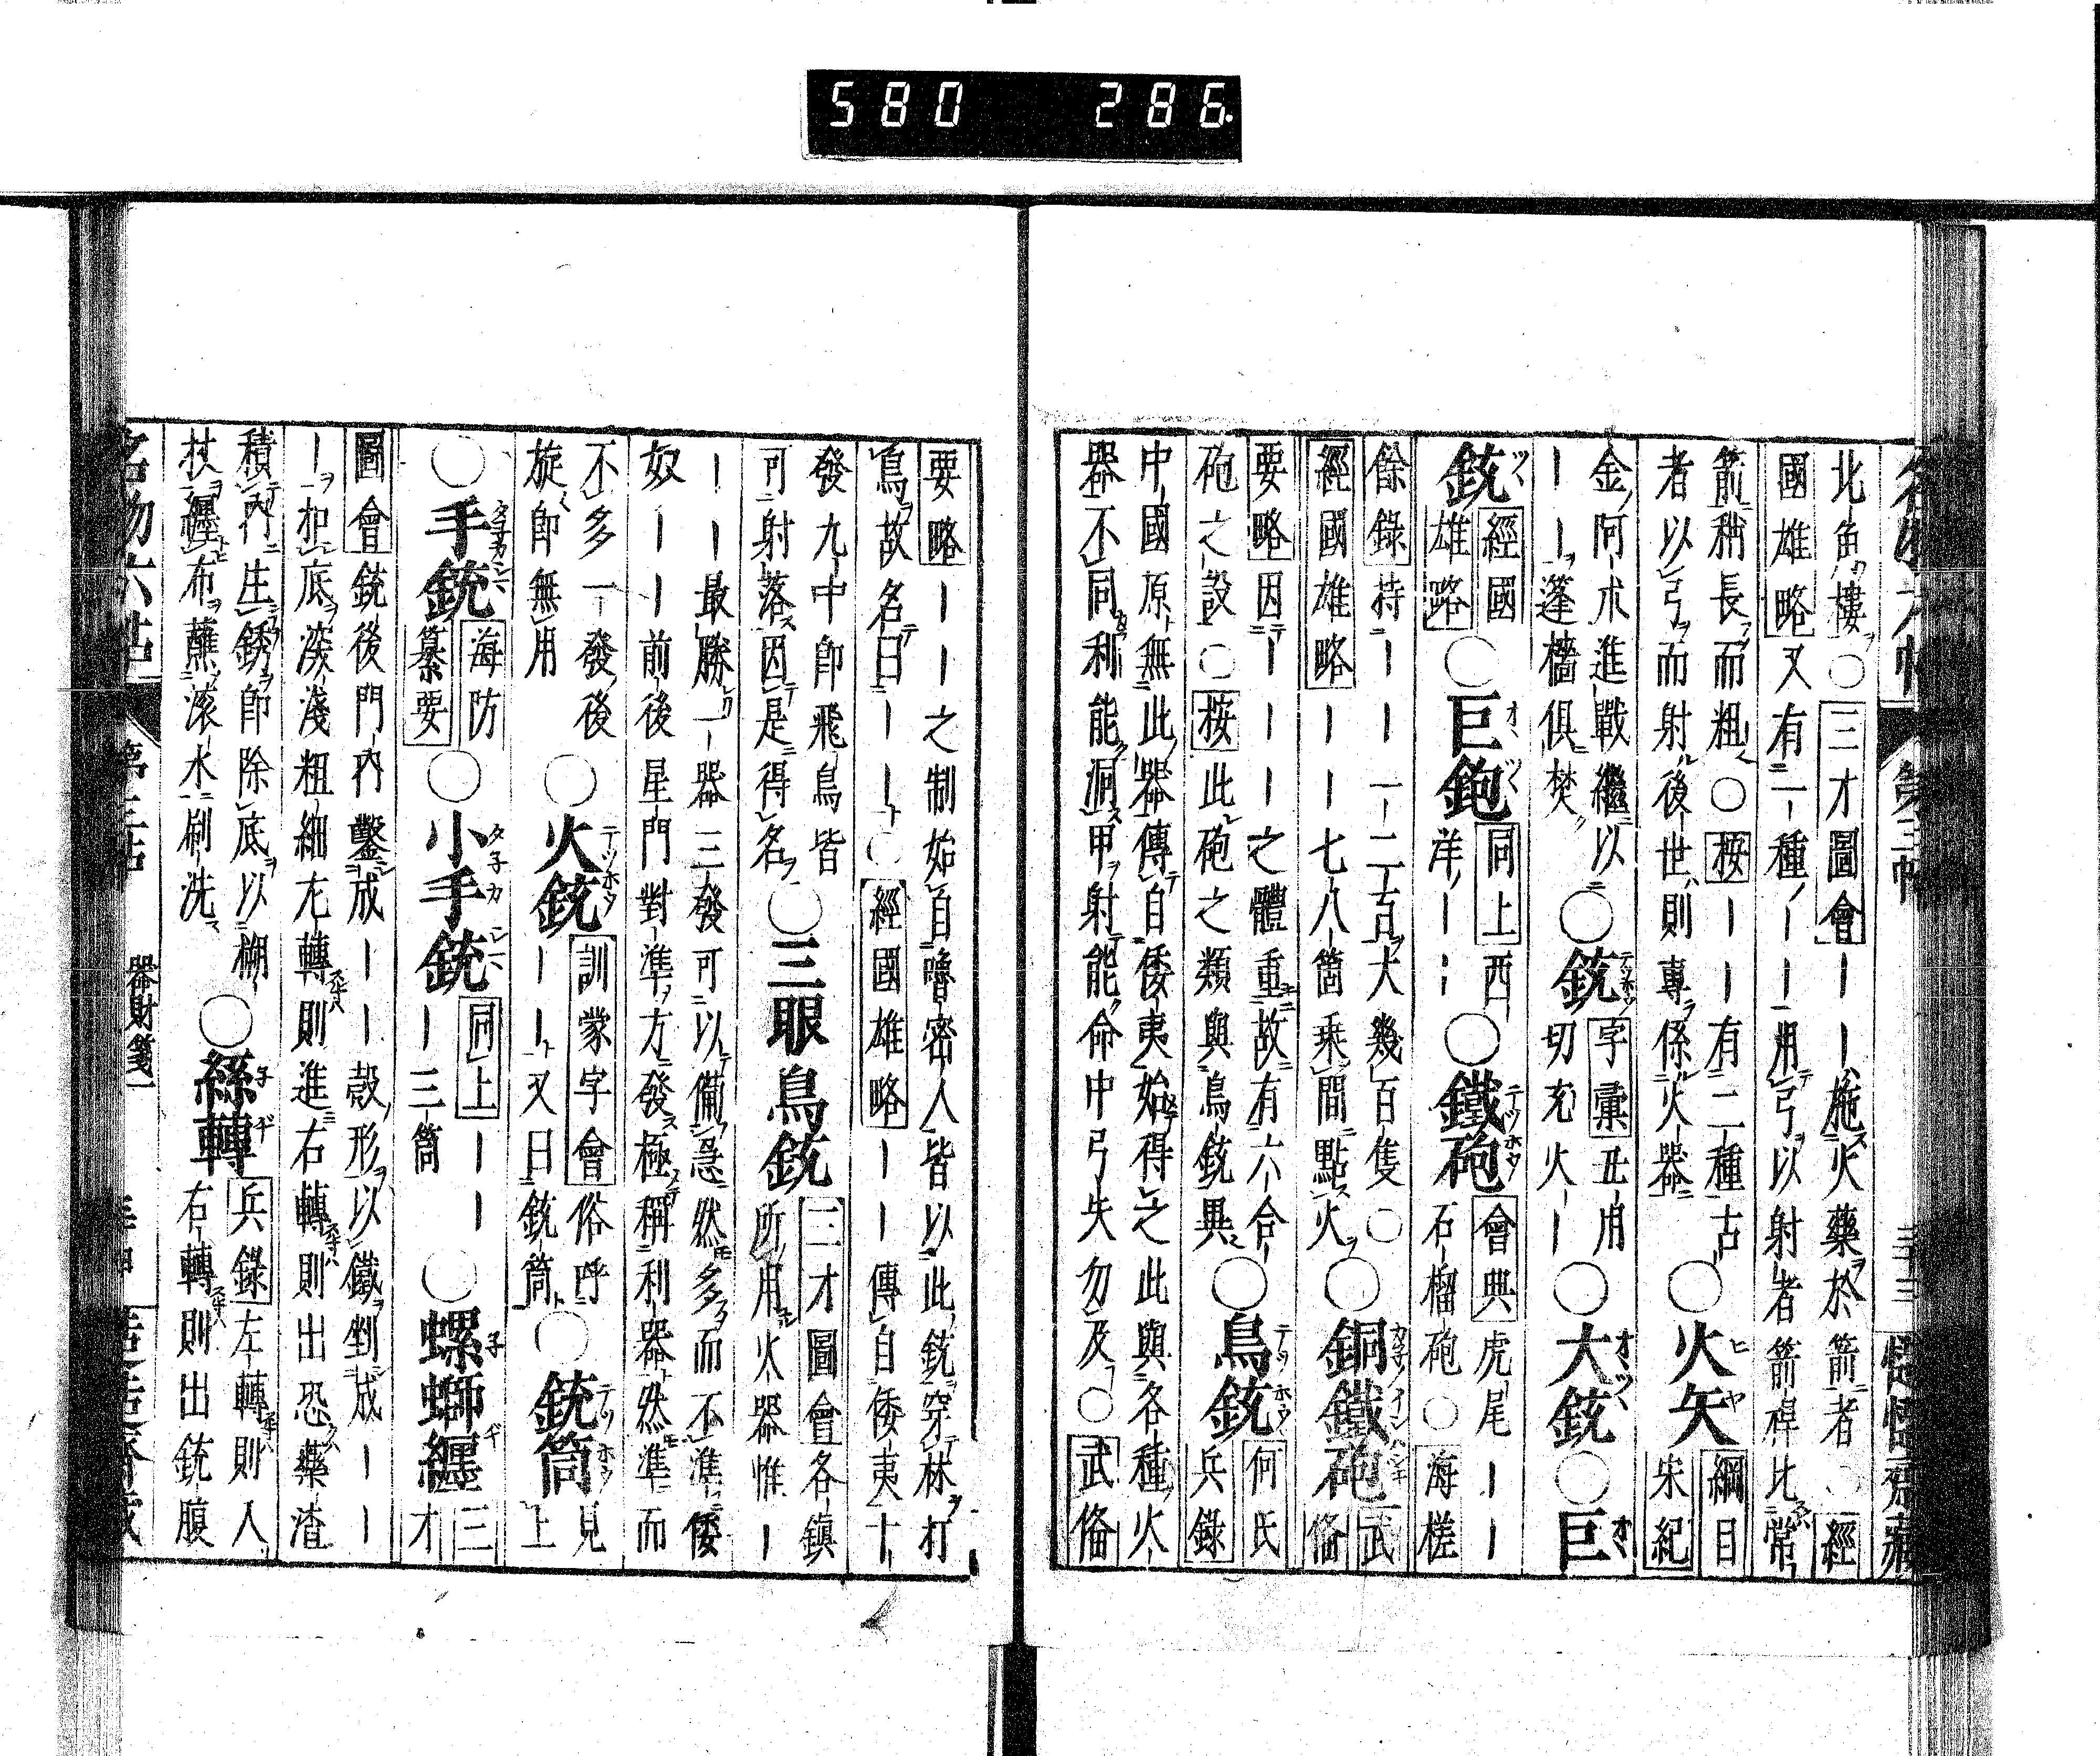 580 286.
名物六帖 第三帖 三十三 㒺㒺齋藏
北角樓○三才圖會｜｜施火藥於箭者○經
國雄略又有二種｜｜用弓以射者箭稈比常
箭稍長而粗○按｜｜有二種古
者以弓而射後世則專係火器○火矢綱目宋紀
金阿朮進戰繼以
｜｜蓬檣俱焚○銃字彙丑用切充火｜｜○大銃○巨
銃經國雄略○巨鉋同上西洋｜｜○鐵砲會典虎尾｜｜石榴砲○海槎
餘錄持｜｜一二百大幾百隻○
經國雄略｜｜七八箇乘間點火○銅鐵砲武備
要略因｜｜｜之體重故有六合
砲之設○按此砲之類與鳥銃異○鳥銃何氏兵錄
中國原無此器傳自倭夷始得之此與各種火
器不同利能洞甲射能命中弓矢勿及○武備
要略｜｜之制始自嚕密人皆以此銃穿林打
鳥故名曰｜｜○經國雄略｜｜傳自倭夷十
發九中卽飛鳥皆
可射落因是得名○三眼鳥銃三才圖會各鎮所用火器惟｜
｜｜最勝一器三發可以備急然多而不準倭
奴｜｜前後星門對準方發極稱利器然準而
不多一發後
旋卽無用○火銃訓蒙字會俗呼｜｜又曰銃筒○銃筒見上
○手銃海防纂要○小手銃同上｜｜｜三筒○螺螄纏三才
圖會銃後門內鑿成｜｜殼形以鐵剉成｜｜
｜扣底淡淺粗細左轉則進右轉則出恐藥渣
積內生銹卽除底以棚
杖纏布蘸滚水刷洗○絲轉兵錄左轉則入右轉則出銃腹
名物六帖 第三帖 器財箋一